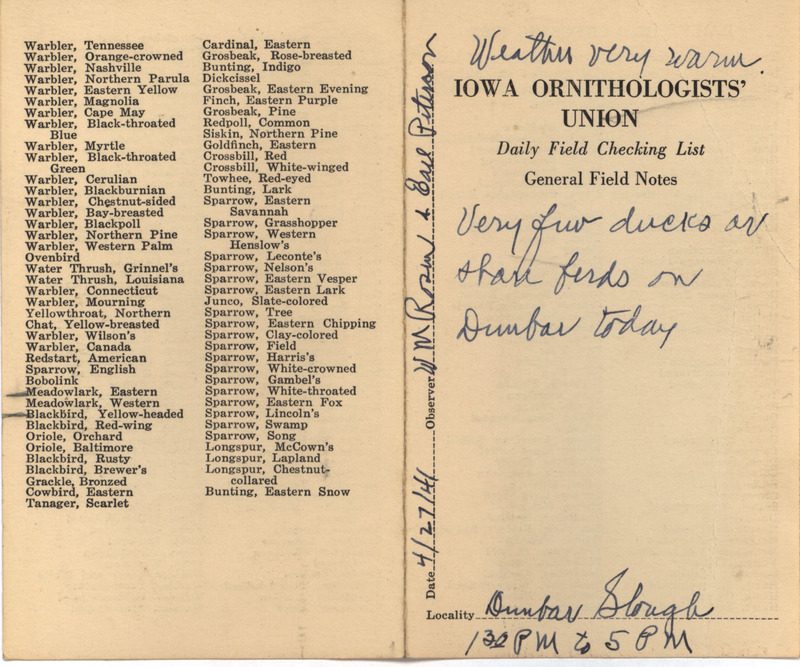 Warbler, Tennessee
Warbler, Orange-crowned
Warbler, Nashville
Warbler, Northern Parula
Warbler, Eastern Yellow
Warbler, Magnolia
Warbler, Cape May
Warbler, Black-throated
Blue
Warbler, Myrtle
Warbler, Black-throated
Green
Warbler, Cerulian
Warbler, Blackburnian
Warbler, Chestnut-sided
Warbler, Bay-breasted
Warbler, Blackpoll
Warbler, Northern Pine
Warbler, Western Palm
Ovenbird
Water Thrush, Grinnel's
Water Thrush, Louisiana
Warbler, Connecticut
Warbler, Mourning
Yellowthroat, Northern
Chat, Yellow-breasted
Warbler, Wilson's
Warbler, Canada
Redstart, American
Sparrow, English
Bobolink
Meadowlark, Eastern
Meadowlark, Western
Blackbird, Yellow-headed
Blackbird, Red-wing
Oriole, Orchard
Oriole, Baltimore
Blackbird, Rusty
Blackbird, Brewer's
Grackle, Bronzed
Cowbird, Eastern
Tanager, Scarlet
Cardinal, Eastern
Grosbeak, Rose-breasted
Bunting, Indigo
Dickcissel
Grosbeak, Eastern Evening
Finch, Eastern Purple
Grosbeak, Pine
Redpoll, Common
Siskin, Northern Pine
Goldfinch, Eastern
Crossbill, Red
Crossbill, White-winged
Towhee, Red-eyed
Bunting, Lark
Sparrow, Eastern
Savannah
Sparrow, Grasshopper
Sparrow, Western
Henslow's
Sparrow, Leconte's
Sparrow, Nelson's
Sparrow, Eastern Vesper
Sparrow, Eastern Lark
Junco, Slate-colored
Sparrow, Tree
Sparrow, Eastern Chipping
Sparrow, Clay-colored
Sparrow, Field
Sparrow, Harris's
Sparrow, White-crowned
Sparrow, Gambel's
Sparrow, White-throated
Sparrow, Eastern Fox
Sparrow, Lincoln's
Sparrow, Swamp
Sparrow, Song
Longspur, McCown's
Longspur, Lapland
Longspur, Chestnut-
collared
Bunting, Eastern Snow
Date 4/27/41 Observer W M Rosene & Earl Peterson
Weather very warm.
IOWA ORNITHOLOGISTS'
UNION
Daily Field Checking List
General Field Notes
Very few ducks or
shore birds on
Dunbar today
Locality Dunbar Slough
1 30 PM to 5 PM